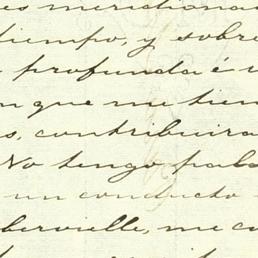 es meridiona
tiempo, y sobre
profunda é i
n que me tien
s, contribuira
No tengo pala
un conducto
bervielle, me co